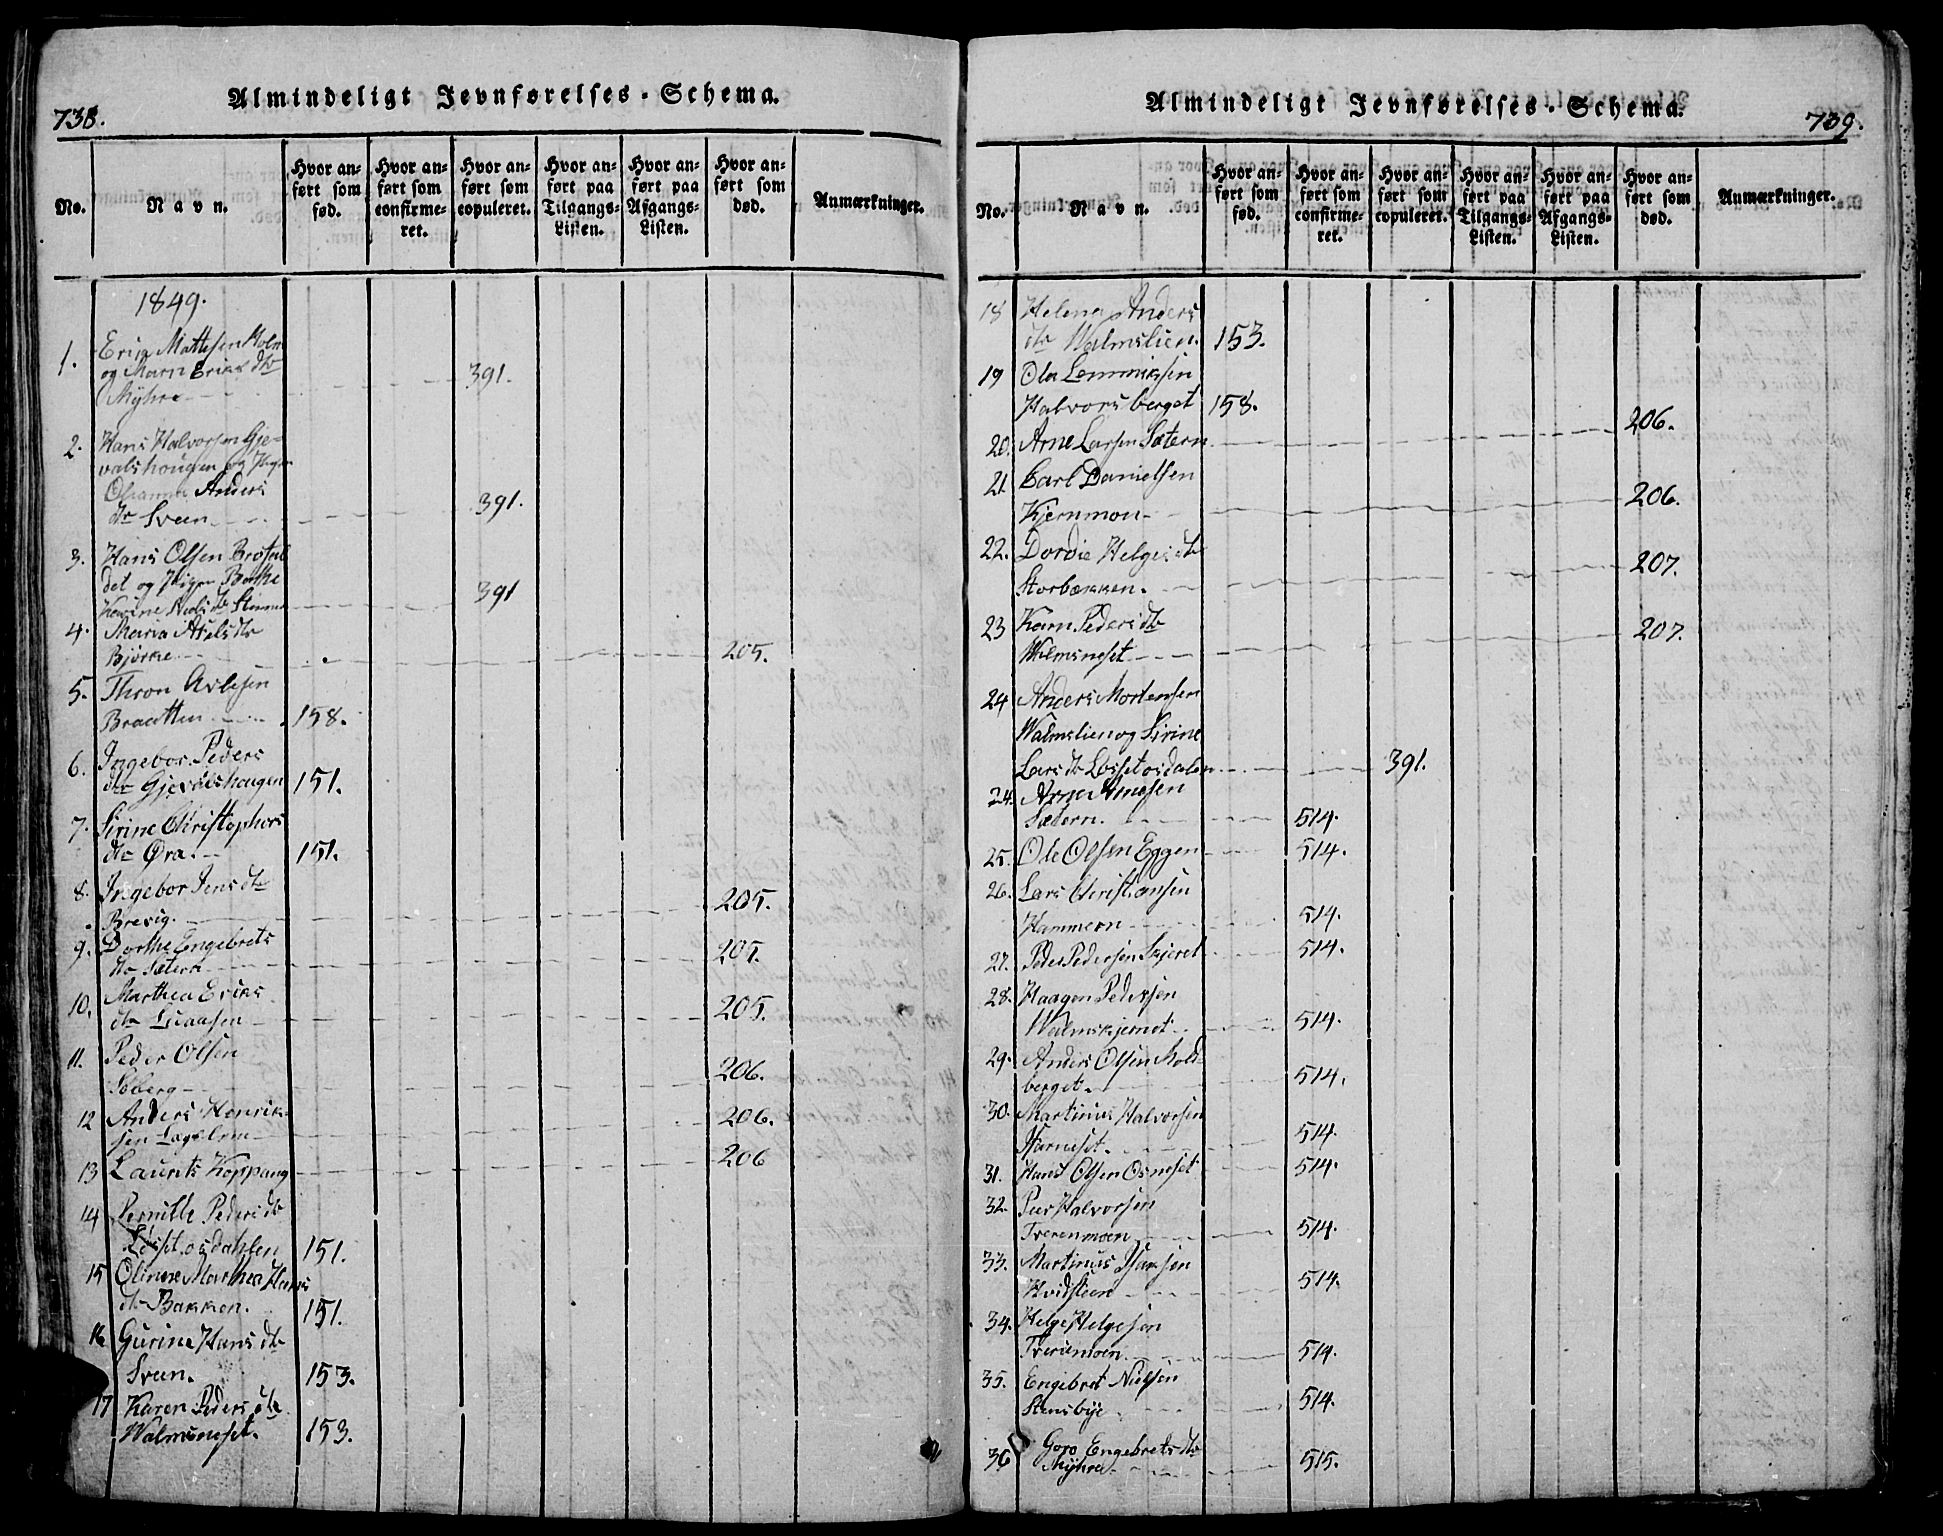 738.
Almindeligt Jevnførelses-Schema.
No.
Navn.
Hvor anført som fød.
Hvor anført som confirmeret.
Hvor anført som copuleret.
Hvor anført paa Tilgangs-Listen.
Hvor anført paa Afgangs-Listen.
Hvor anført som død.
Anmærkninger.
1849.
1. Erik Mattesen Holm
og Marn Eriks dtr
Myhre 391.
2. Hans Halvorsen Gje-
valshougen og Pigen
Olianna Anders
dtr Sveen 391.
3. Hans Olsen
det og Pigen Berthe
Karine Niels dtr 391
4. Maria Axels dtr
Bjørke 205.
5. Thron Aslesen
Braatten 158.
6. Ingebor Peders
dtr Gjevalshaugen 151.
7. Sirine Christophers
dtr Øra. 151.
8. Ingebor Jens dtr
Brevig. 205.
9. Dorthe Engebrets
dtr Sætern 205.
10. Marthea Eriks
dtr 205.
11. Peder Olsen
Søberg 206.
12 Anders Henrik-
sen 206.
13 Laurits Koppang 206
14 Pernille Peders dtr
Løsset osdahlen 151.
15 Olinne Marthea Hans
dtr Bakken. 151.
16 Gurine Hans dtr
Sveen. 153.
17 Karen Peders dtr
Walmsneset. 153.
Almindeligt Jevnførelses-Schema.
739.
No.
Navn.
Hvor anført som fød.
Hvor anført som confirmeret.
Hvor anført som copuleret.
Hvor anført paa Tilgangs-Listen.
Hvor anført paa Afgangs-Listen.
Hvor anført som død.
Anmærkninger.
18 Helena Anders
dtr Walmslien. 153.
19 Ola Lemmiksen
Halvorsberget 158.
20. Arne Larsen Sætern 206.
21. Carl Danielsen
Kjernmon 206.
22. Dordie Helges dtr
Storbækken. 207.
23 Karn Peders dtr
Walmsneset 207.
24 Anders Mortensen
Walmslien og Sirine
Lars dtr Løsset osdalen 391.
24. Arne Arnesen
Sætern. 514.
25. Ole Olsen Eggen 514.
26. Lars Christiansen
Hammern 514.
27. Peder Pedersen Skjeret 514.
28. Haagen Pedersen
Walmskjernet 514.
29. Anders Olsen Mold-
berget. 514.
30. Martinus Halvorsen
514.
31. Hans Olsen Osneset 514.
32. Peer Halvorsen
Trerenmoen 514.
33. Martinus
Hvidsteen 514.
34. Helge Helgesen
514.
35. Engebret Nielsen
Stensbye 514.
36 Goro Engebrets dtr
Myhre 515.